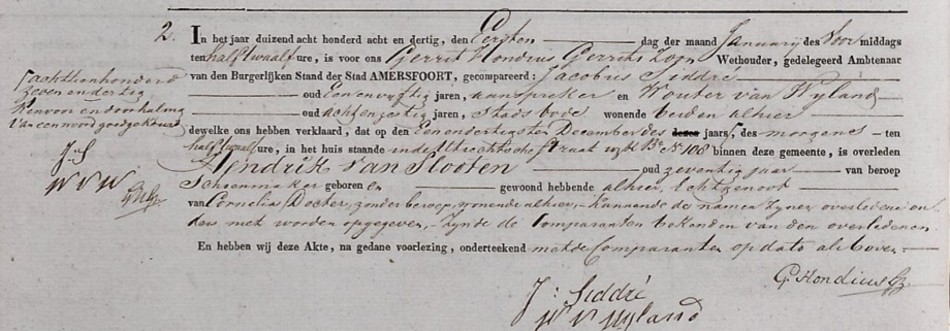 2. In het jaar duizend acht honderd acht en dertig, den Eersten dag der maand January des Voor middags
ten half twaalf ure, is voor ons Gerrit Hondius Gerrits Zoon Wethouder, gedelegeerd Ambtenaar
van den Burgerlijken Stand der Stad AMERSFOORT, gecompareerd: Jacobus Siddré
oud Een en vijftig jaren, aanspreker en Wouter van Wyland
oud acht en zestig jaren, Stads bode wonende beiden alhier
dewelke ons hebben verklaard, dat op den Een en dertigsten December des dezes jaars, des morgens ten
half twaalf ure, in het huis staande in de Utrechtsche Straat wyk B. N 108 binnen deze gemeente, is overleden
Hendrik van Slooten oud zeventig jaar van beroep
Schoenmaker geboren en gewoond hebbende alhier, Echtgenoot
van Cornelia Docter, zonder beroep, wonende alhier, kunnende de namen zyner overledene ou
ders niet worden opgegeven, zynde de Comparanten bekenden van den overledenen.
En hebben wij deze Akte, na gedane voorlezing, onderteekend met de Comparanten op dato als boven
achttienhonderd
zeven en dertig
Renvooi en doorhaling
van een woord goedgekeurd
J: S
W V W
GHGz
G. Hondius Gz
J: Siddré
W V Wyland